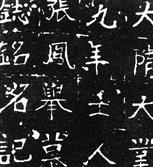 大隋大業
九年士人
張鳳舉墓
誌銘名記